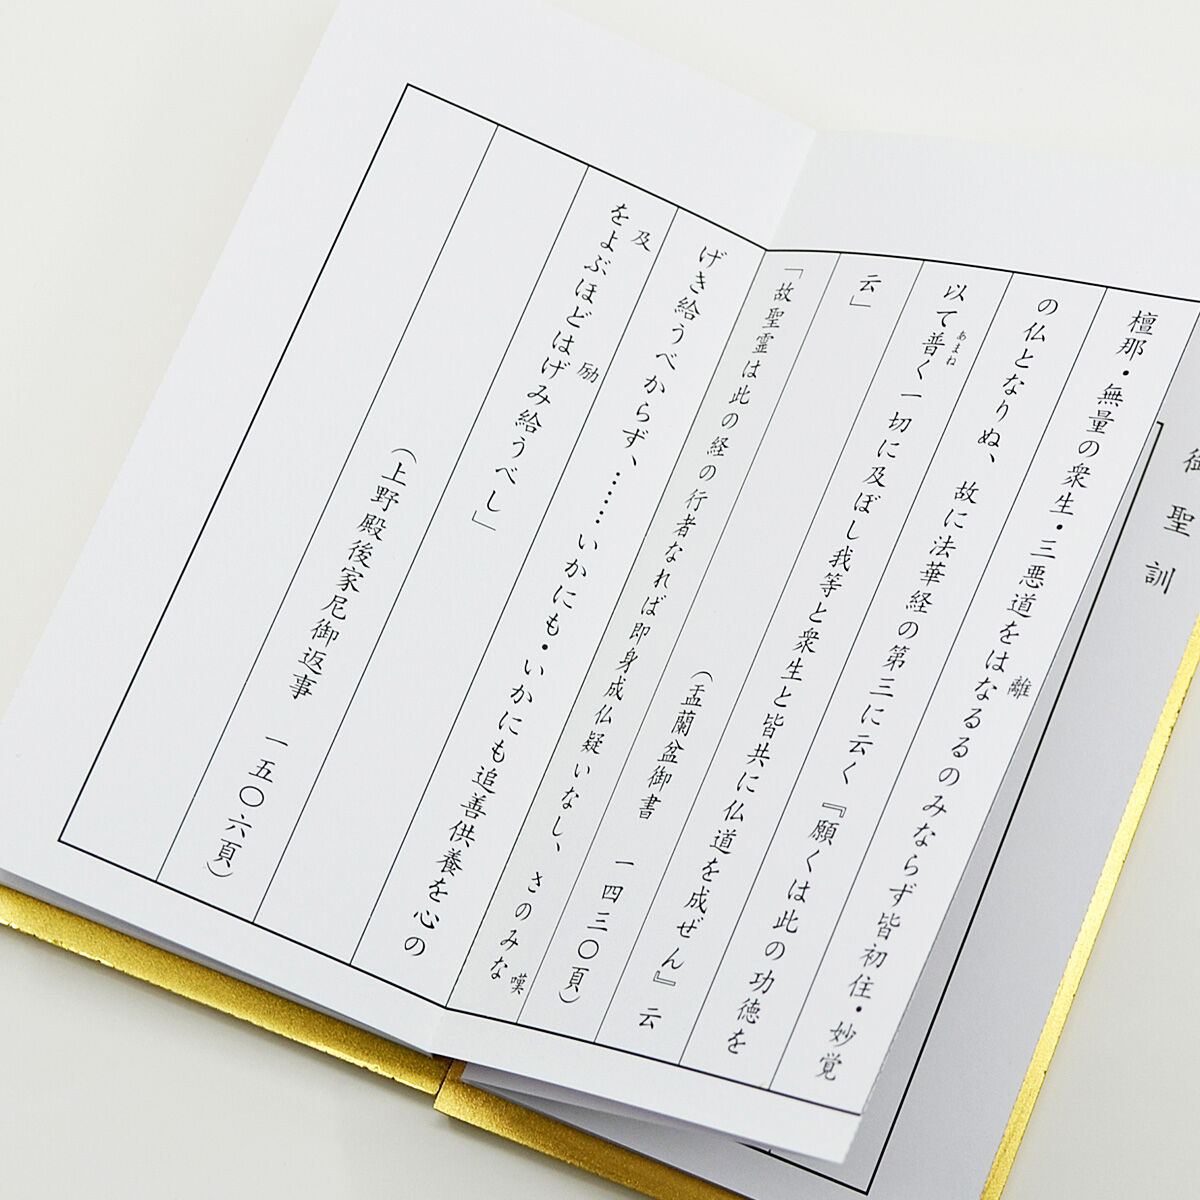 御聖訓
檀那・無量の衆生・三悪道をはなるるのみならず皆初住・妙覚
離
の仏となりぬ、故に法華経の第三に云く『願くは此の功徳を
以て普く一切に及ぼし我等と衆生と皆共に仏道を成ぜん』云
あまね
云」
(盂蘭盆御書 一四三〇頁)
「故聖霊は此の経の行者なれば即身成仏疑いなし、さのみな
嘆
げき給うべからず、……いかにも・いかにも追善供養を心の
及
をよぶほどはげみ給うべし」
励
(上野殿後家尼御返事 一五〇六頁)